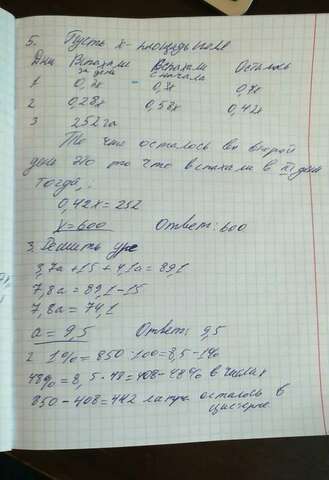 5. Пусть x - площадь поля
Дни Вспахали за день Вспахали с начала Осталось
1 0,3x 0,3x 0,7x
2 0,28x 0,58x 0,42x
3 252га
То что осталось во второй
день это то что вспахали в III день
тогда:
0,42x = 252
x = 600 Ответ: 600
3. Решить ур
3,7a + 15 + 4,1a = 89,1
7,8a = 89,1 - 15
7,8a = 74,1
a = 9,5 Ответ: 9,5
2 1% = 850 : 100 = 8,5 - 1%
48% = 8,5 · 48 = 408 - 48% в числах
850 - 408 = 442 литра осталось в
цистерне